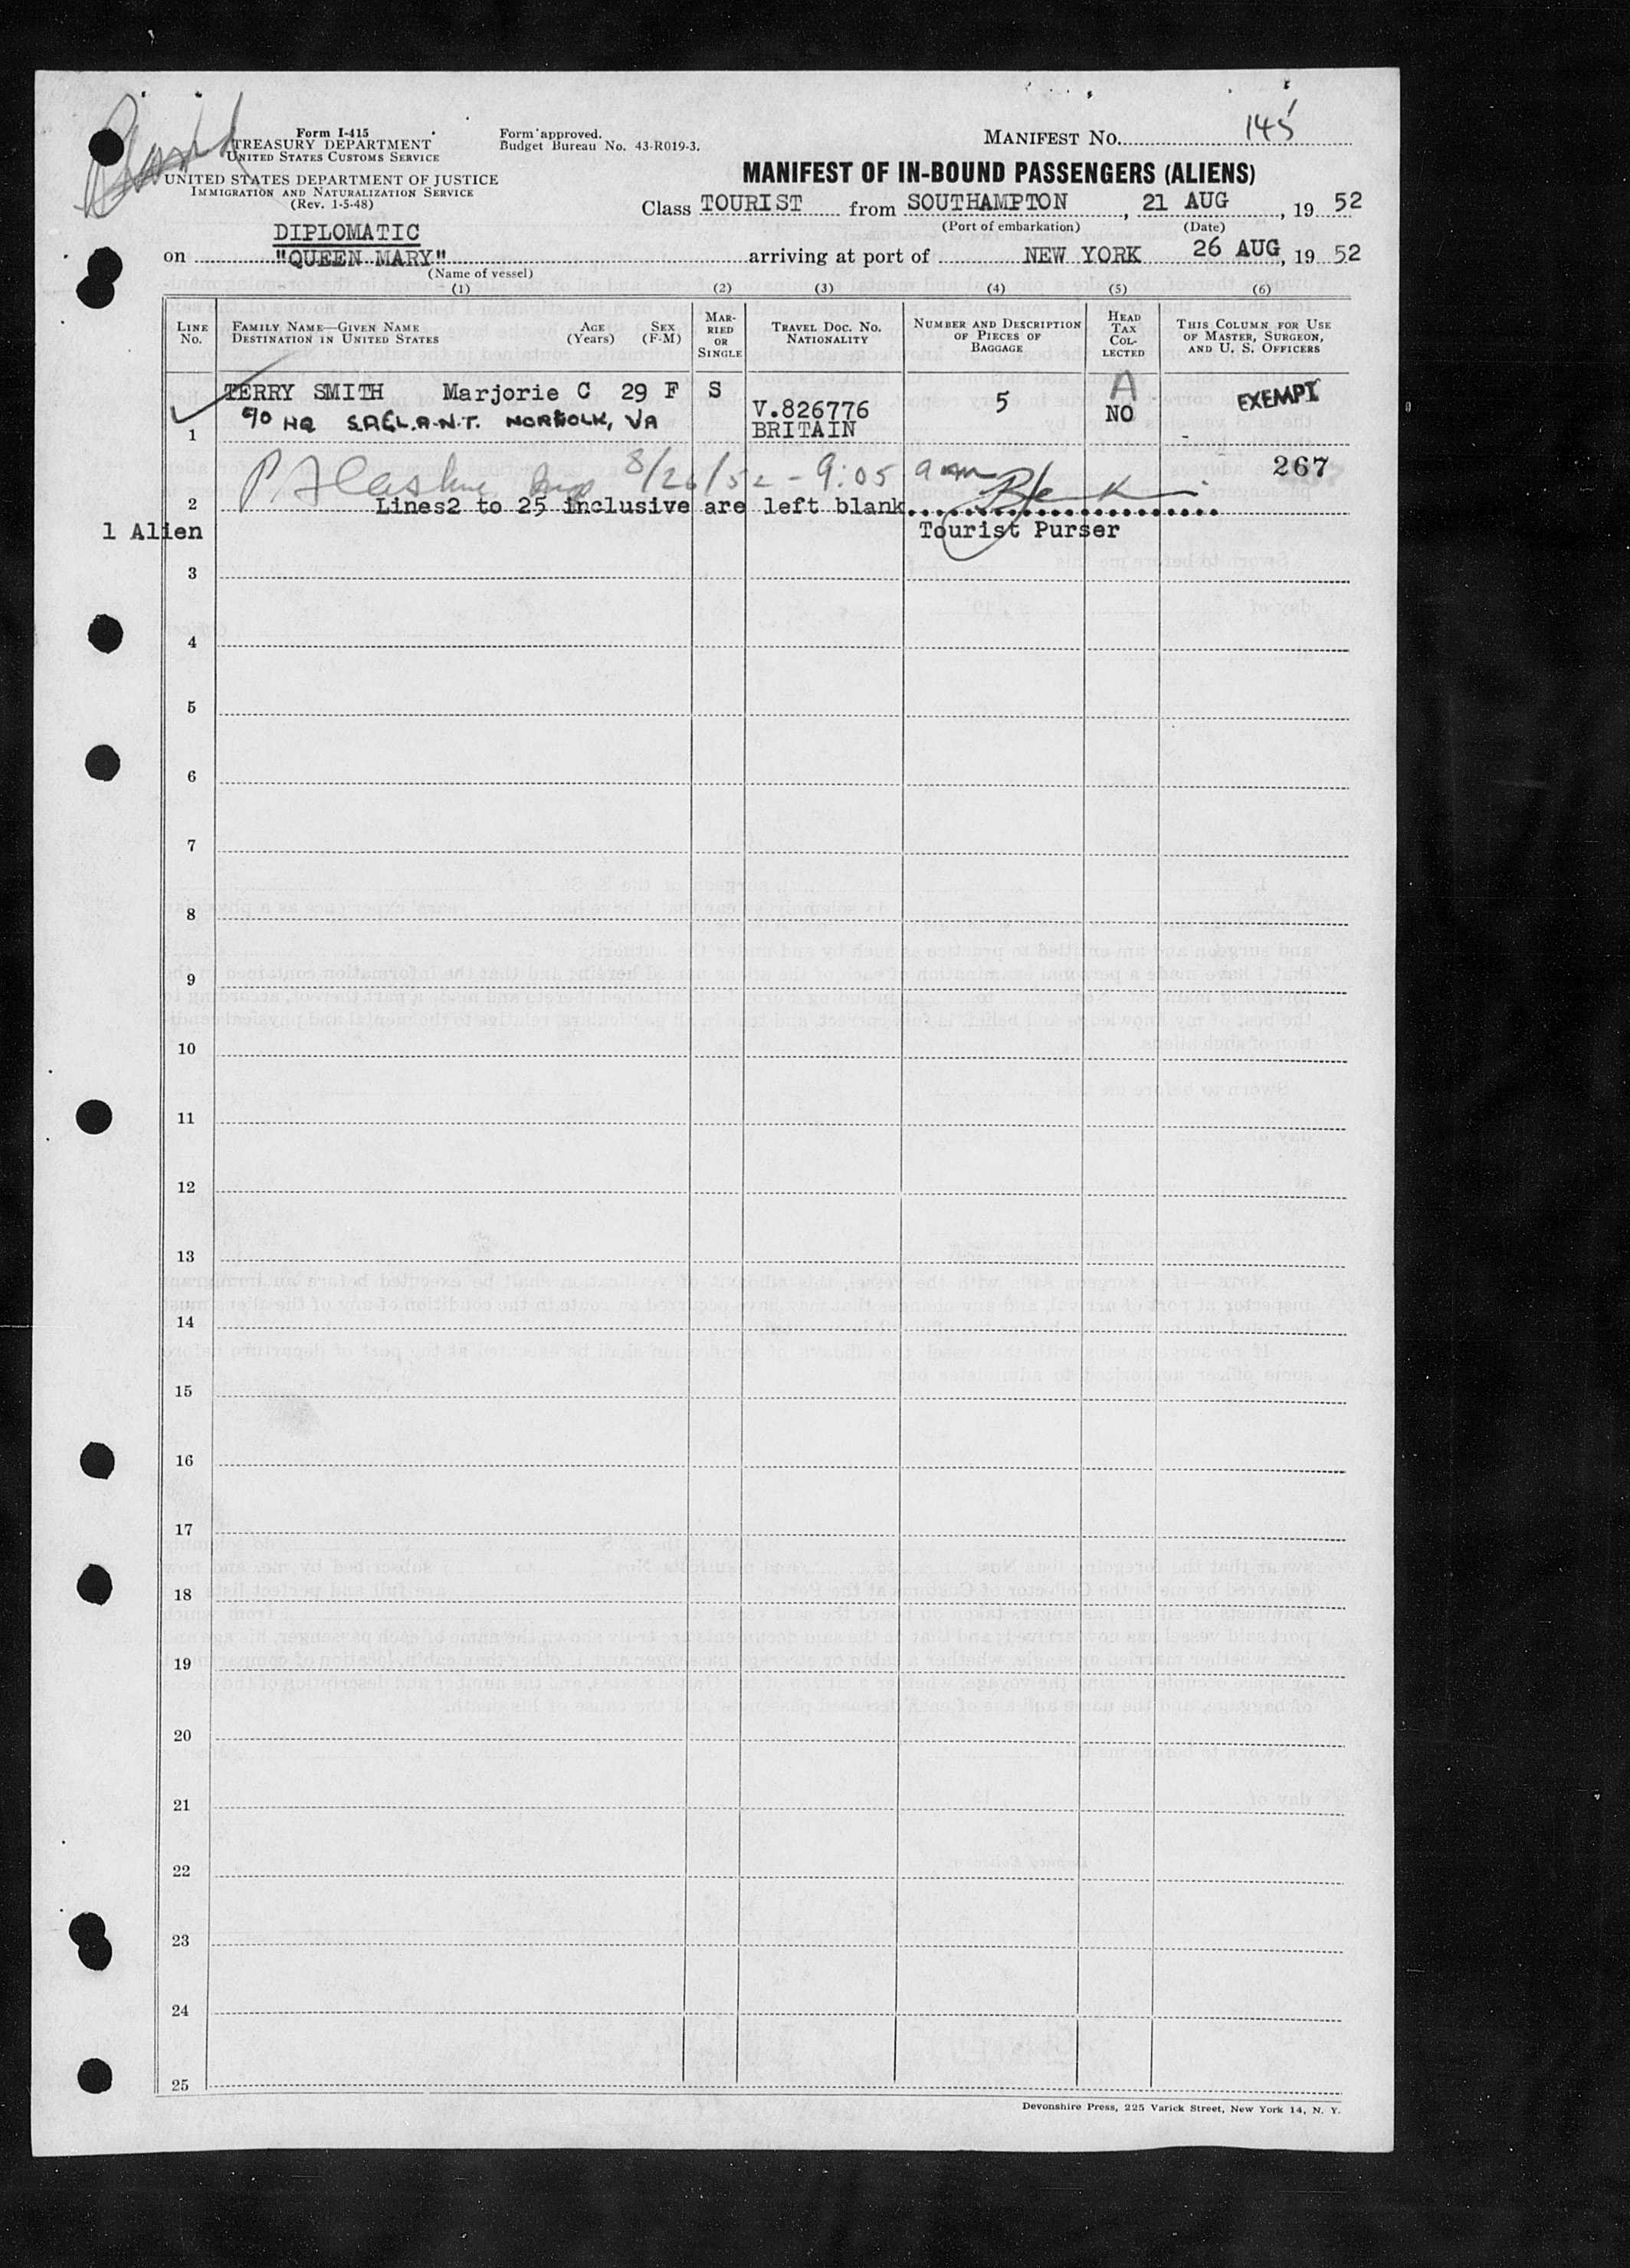 Form I-415
TREASURY DEPARTMENT
UNITED STATES CUSTOMS SERVICE
UNITED STATES DEPARTMENT OF JUSTICE
IMMIGRATION AND NATURALIZATION SERVICE
(Rev. 1-5-48)
Form approved.
Budget Bureau No. 43-R019-3.
MANIFEST No. 145
MANIFEST OF IN-BOUND PASSENGERS (ALIENS)
Class TOURIST from SOUTHAMPTON, 21 AUG, 19 52
(Port of embarkation) (Date)
DIPLOMATIC
on "QUEEN MARY" arriving at port of NEW YORK 26 AUG, 19 52
(Name of vessel)
(1) (2) (3) (4) (5) (6)
LINE No.
FAMILY NAME—GIVEN NAME
DESTINATION IN UNITED STATES
AGE (Years)
SEX (F-M)
MARRIED OR SINGLE
TRAVEL DOC. NO.
NATIONALITY
NUMBER AND DESCRIPTION OF PIECES OF BAGGAGE
HEAD TAX COLLECTED
THIS COLUMN FOR USE OF MASTER, SURGEON, AND U. S. OFFICERS
TERRY SMITH Marjorie C 29 F S V.826776 5 A NO EXEMPT
1 c/o HQ S.A.C.L.A.N.T. NORFOLK, VA BRITAIN
8/26/52 - 9:05 am 267
2 Lines2 to 25 inclusive are left blank
1 Alien Tourist Purser
3
4
5
6
7
8
9
10
11
12
13
14
15
16
17
18
19
20
21
22
23
24
25
Devonshire Press, 225 Varick Street, New York 14, N. Y.